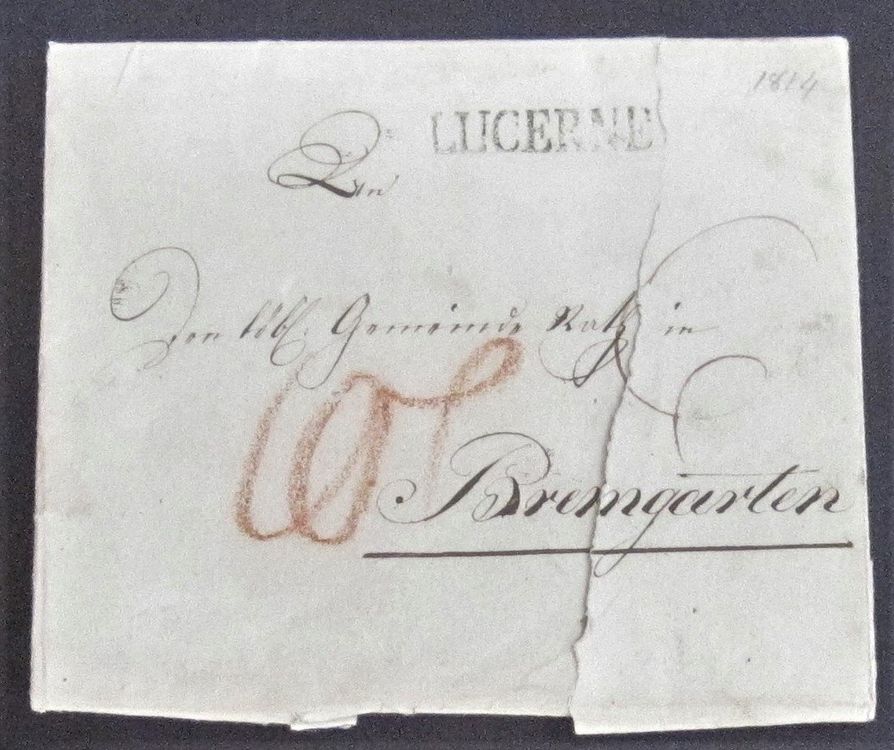 1814
LUCERNE
An
Den löbl. Gemeinde Rath in
Bremgarten